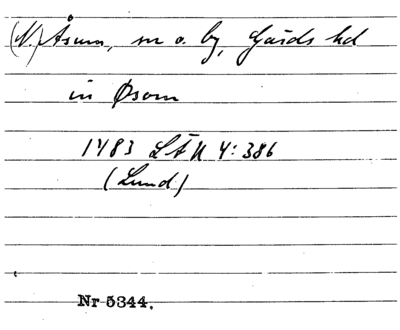 (N.) Åsum, sn o. by, Gärds hd
in Øsom
1483 LÄU 4:386
(Lund)
Nr 5344.